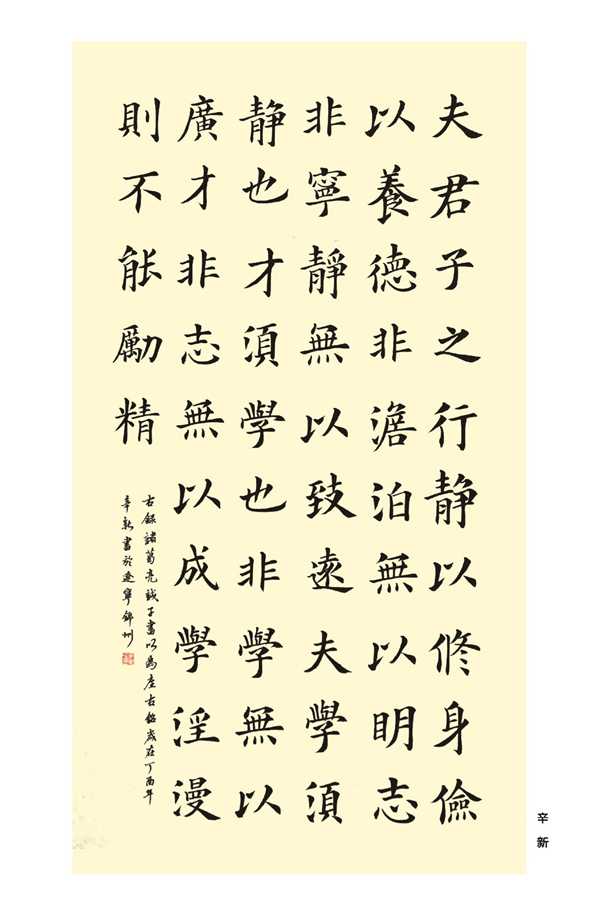 夫君子之行静以修身儉
以養德非澹泊無以明志
非寧静無以致遠夫學須
静也才須學也非學無以
廣才非志無以成學淫漫
則不能勵精
右録諸葛亮誡子書以為座右銘歲在丁酉年
辛新書於遼寧錦州
辛新